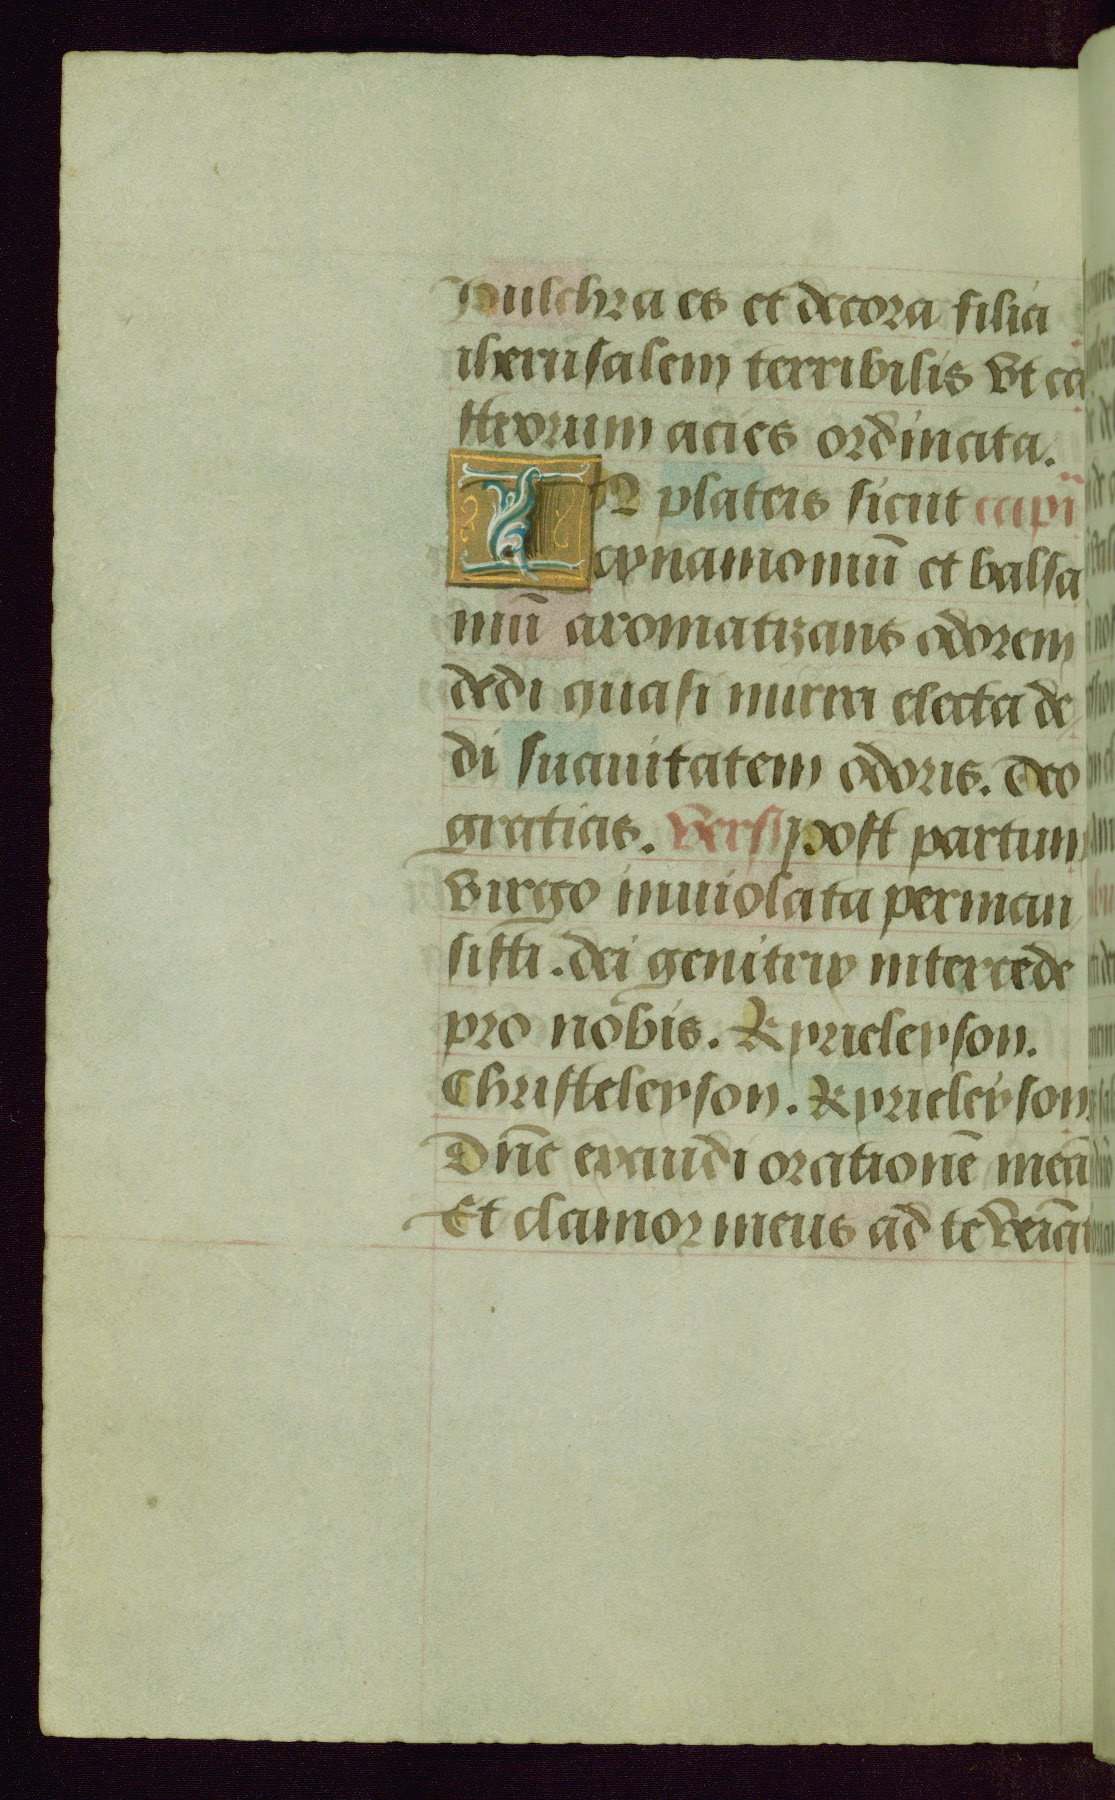 Pulchra es et decora filia
iherusalem terribilis vt ca
strorum acies ordinata.
IN plateis sicut capi
cynamomũ et balsa
mũ aromatizans odorem
dedi quasi mirra electa de
di suauitatem odoris. Deo
gratias. Versi post partum
virgo inuiolata perman
sisti. dei genitrix intercede
pro nobis. Kyrieleyson.
Christeleyson. Kyrieleyson
Dñe exaudi orationẽ meã
Et clamor meus ad te veniat